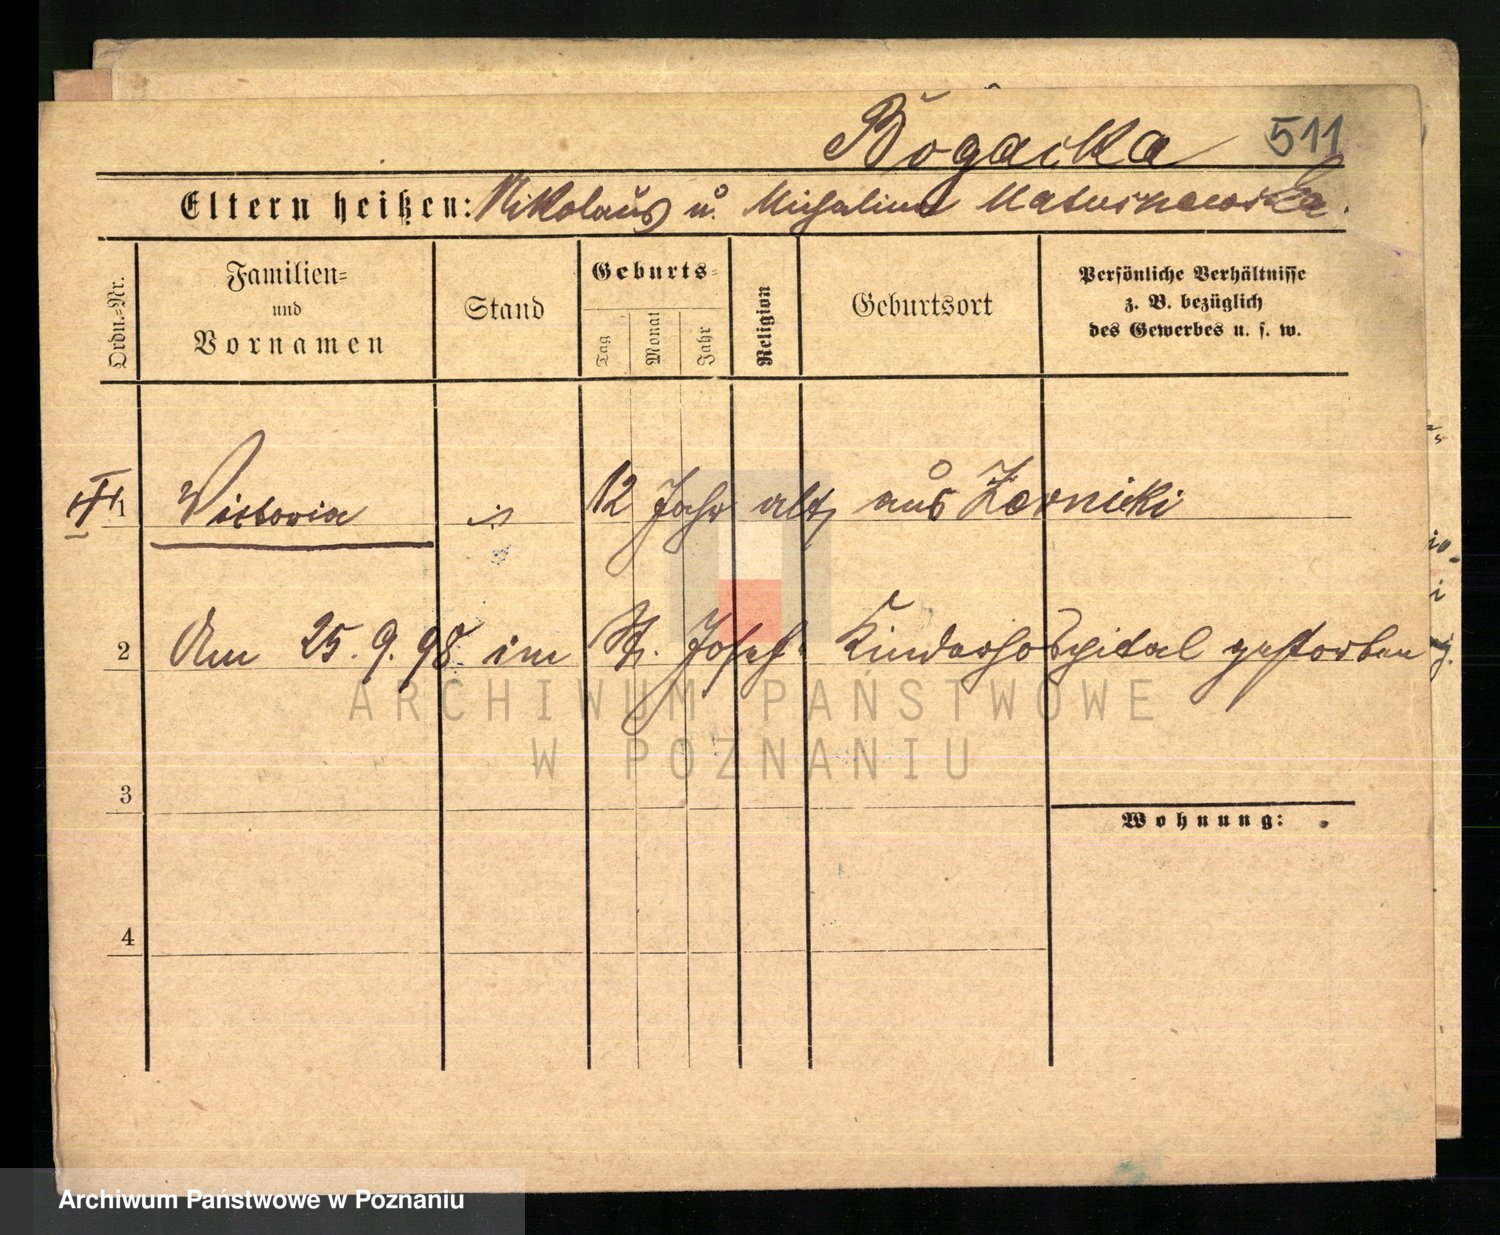 Bogacka 511
Eltern heißen: Nikolaus u. Michalina Maturszewska.
Ordn.-Nr.
Familien- und Vornamen
Stand
Geburts-
Tag
Monat
Jahr
Religion
Geburtsort
Persönliche Verhältnisse
z. B. bezüglich
des Gewerbes u. s. w.
1 Victoria 12 Jahr alt, aus Zerniki
2 Am 25.9.98. im St. Josef Kinderhospital gestorben
3
Wohnung:
4
ARCHIWUM PAŃSTWOWE
W POZNANIU
Archiwum Państwowe w Poznaniu